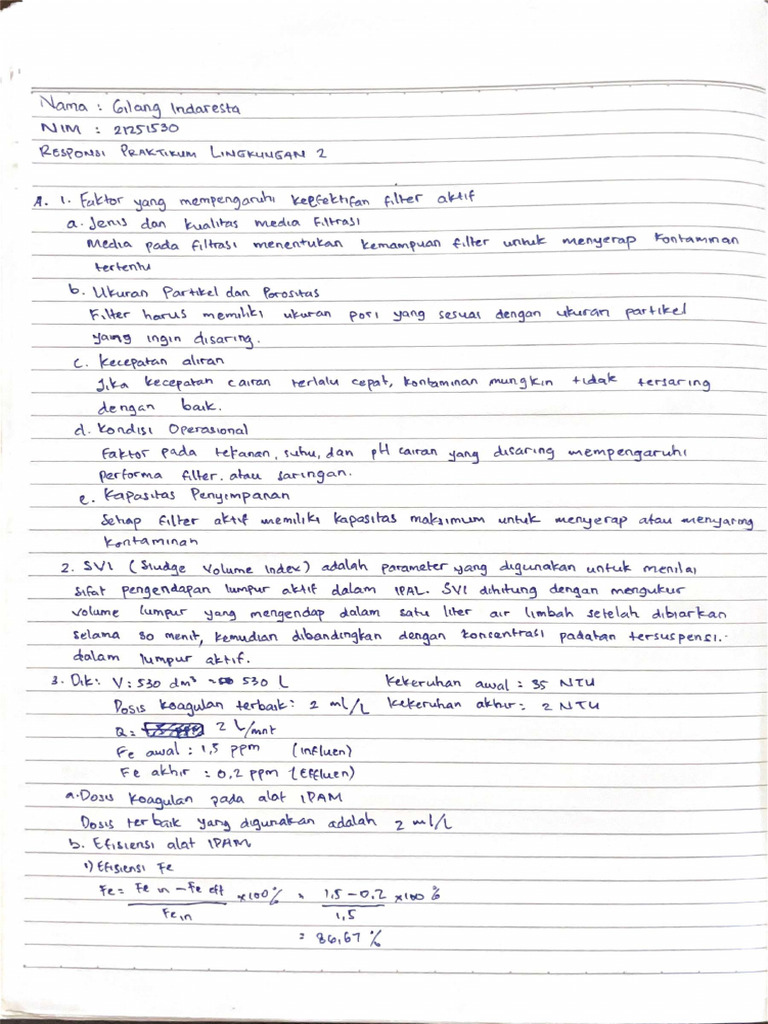 Nama : Gilang Indaresta
NIM : 21251530
RESPONSI PRAKTIKUM LINGKUNGAN 2
A. 1. Faktor yang mempengaruhi keefektifan filter aktif
a. Jenis dan kualitas media filtrasi
Media pada filtrasi menentukan kemampuan filter untuk menyerap kontaminan
tertentu
b. Ukuran Partikel dan Porositas
Filter harus memiliki ukuran pori yang sesuai dengan ukuran partikel
yang ingin disaring.
c. Kecepatan aliran
Jika kecepatan cairan terlalu cepat, kontaminan mungkin tidak tersaring
dengan baik.
d. Kondisi Operasional
Faktor pada tekanan, suhu, dan pH cairan yang disaring mempengaruhi
performa filter. atau saringan.
e. Kapasitas Penyimpanan
Setiap filter aktif memiliki kapasitas maksimum untuk menyerap atau menyaring
kontaminan
2. SVI (Sludge Volume Index) adalah parameter yang digunakan untuk menilai
sifat pengendapan lumpur aktif dalam IPAL. SVI dihitung dengan mengukur
volume lumpur yang mengendap dalam satu liter air limbah setelah dibiarkan
selama 30 menit, kemudian dibandingkan dengan koncentrasi padatan tersuspensi.
dalam lumpur aktif.
3. Dik: V : 530 dm³ = 530 L Kekeruhan awal : 35 NTU
Dosis koagulan terbaik : 2 ml/L Kekeruhan akhir : 2 NTU
Q = 2 L/mnt
Fe awal : 1,5 ppm (Influen)
Fe akhir : 0,2 ppm (Effluen)
a. Dosis koagulan pada alat IPAM
Dosis terbaik yang digunakan adalah 2 ml/L
b. Efisiensi alat IPAM
1) Efisiensi Fe
Fe = Fe in - Fe eff / Fe in x 100% = 1,5 - 0,2 / 1,5 x 100 %
= 86,67 %